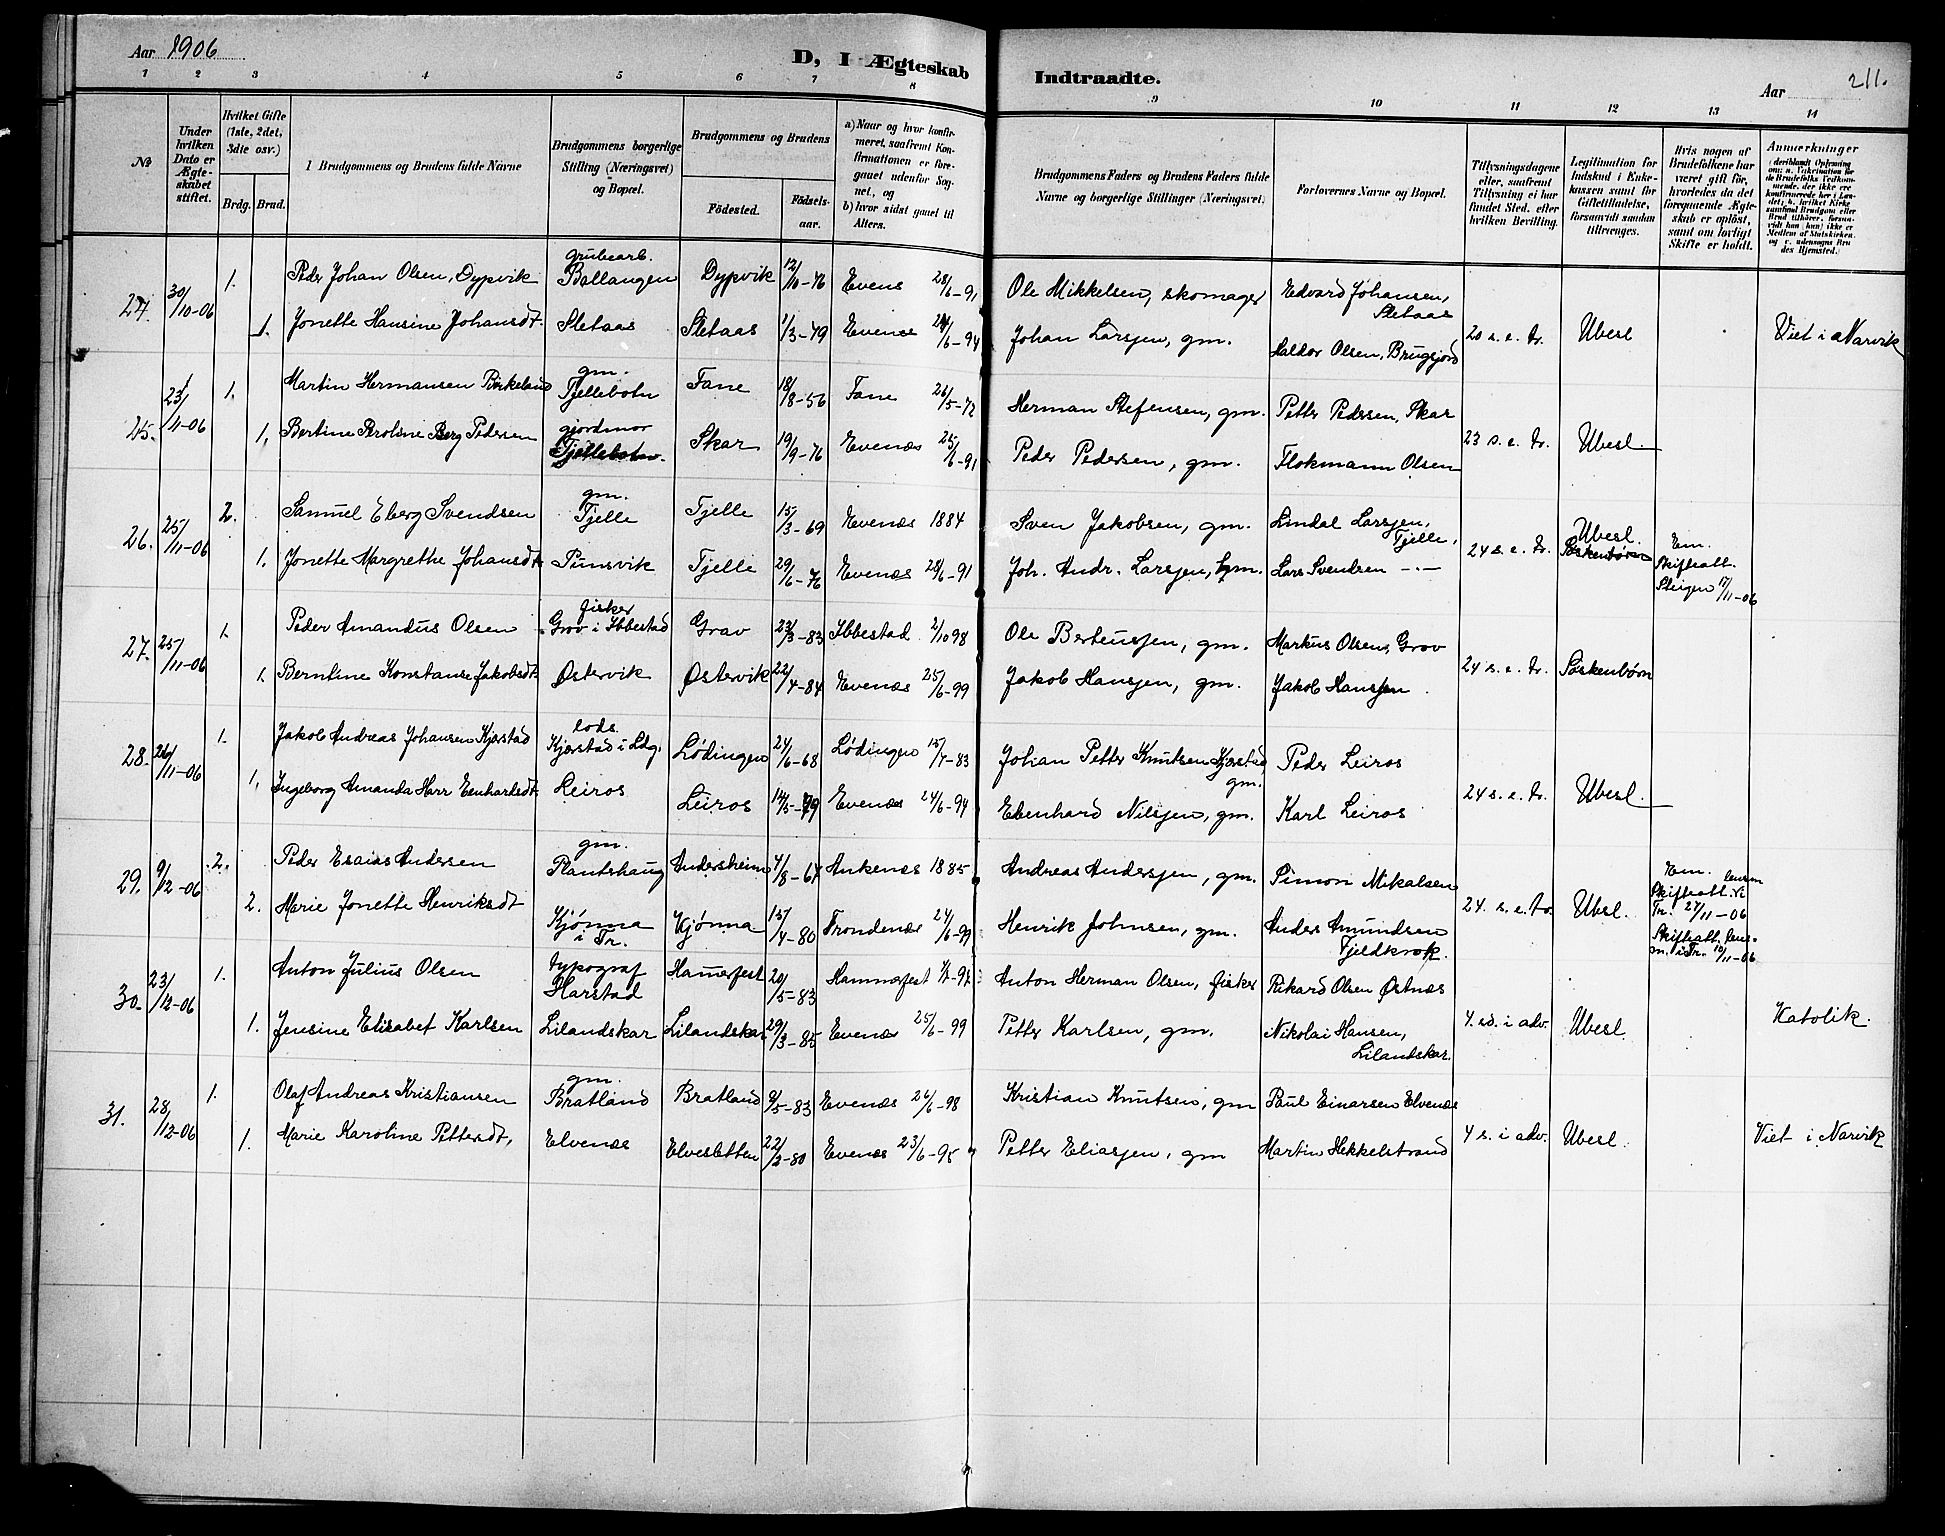 Aar 1906
D, I Ægteskab Indtraadte.
Aar
211.
1 2 3 4 5 6 7 8 9 10 11 12 13 14
No
Under hvilken Dato er Ægteskabet stiftet.
Hvilket Gifte (1ste, 2det, 3die osv.)
Brdg. Brud.
Brudgommens og Brudens fulde Navne
Brudgommens borgerlige Stilling (Næringsvei) og Bopæl.
Brudgommens og Brudens
Födested. Födselsaar.
a) Naar og hvor konfirmeret, saafremt Konfirmationen er foregaaet udenfor Sognet, og
b) hvor sidst gaaet til Alters.
Brudgommens Faders og Brudens Faders fulde Navne og borgerlige Stillinger (Næringsvei).
Forlovernes Navne og Bopæl.
Tillysningsdagene eller, saafremt Tillysning ei har fundet Sted, efter hvilken Bevilling.
Legitimation for Indskud i Enkekassen samt for Giftetilladelse, forsaavidt saadan tiltrænges.
Hvis nogen af Brudefolkene har været gift för, hvorledes da det foregaaende Ægteskab er oplöst, samt om lovligt Skifte er holdt.
Anmærkninger
24. 30/10-06 1. Peder Johan Olsen, Dypvik grubearb. Ballangen Dypvik 12/10-76 Evenes 28/6-91 Ole Mikkelsen, skomager Edvard Johansen, Sletaas
1. Jonette Hansine Johansdt. Sletaas Sletaas 1/3-79 Evenes 24/6-94 Johan Larsen, gm. Haldor Olsen, Brugsjord 20 s. e. tr. Ubesl Viet i Narvik
25. 23/11-06 1. Martin Hermansen Birkeland gm. Fjellebotn Fane 18/8-56 Fane 26/5-72 Herman Stefensen, gm. Petter Pedersen, Skar
1. Bertine Roline Berg Pedersen gjordmor Fjellebotn. Skar 19/9-76 Evenæs 25/6-91 Peder Pedersen, gm. Flokmann Olsen 23 s. e. tr. Ubesl.
26. 25/11-06 2. Samuel Eberg Svendsen gm. Tjelle Tjelle 15/3-69 Evenæs 1884 Sven Jakobsen, gm. Lindal Larsen, Tjelle,
1. Jonette Margrethe Johansdt. Punsvik Tjelle 29/6-76 Evenæs 28/6-91 Joh. Andr. Larsen, gm. Lars Svendsen -"- 24 s. e. tr. Ubesl. Søskenbørn Em. Skifteatt. Steigen 17/11-06
27. 25/11-06 1. Peder Amandus Olsen fisker Grov i Ibbestad Grav 23/3-83 Ibbestad 2/10 98 Ole Berteusen, gm. Markus Olsen, Grov
1. Berntine Konstanse Jakobsdt. Østervik Østervik 22/4-84 Evenæs 25/6-99 Jakob Hansen, gm. Jakob Hansen 24 s. e. tr. Søskenbørn
28. 26/11-06 1. Jakob Andreas Johansen Kjærstad lods. Kjærstad i Ldg. Lödingen 24/6-68 Lödingen 15/7-83 Johan Petter Knutsen Kjærstad, gm. Peder Leiros
1. Ingeborg Amanda Harr Ebenhardsdt. Leiros Leiros 14/5-79 Evenæs 24/6-94 Ebenhard Nilsen, gm. Karl Leiros 24 s. e. tr. Ubesl.
29. 9/12-06 2. Peder Esaias Andersen gm. Plantshaug Andersheim 4/8-64 Ankenæs 1885 Andreas Andersen, gm. Simon Mikalsen
2. Marie Jonette Henriksdt Kjönna i Tr. Kjönna 15/4-80 Trondenæs 24/6-99 Henrik Johnsen, gm. Anders Amundsen Fjeldkrok. 24. s. e. tr. Ubesl. Em. Skifteatt. lensm i Tr. 27/11-06 Skifteatt. lensm. i Tr. 10/11-06
30. 23/12-06 1. Anton Julius Olsen typograf Harstad Hamerfest 20/5-83 Hammerfest Anton Herman Olsen, fisker Rikard Olsen Østnæs
1. Jensine Elisabet Karlsen Lilandskar Lilandskar 29/3-85 Evenæs 25/6-99 Petter Karlsen, gm. Nikolai Hansen, Lilandskar. 4. sd. i adv. Ubesl Katolik.
31. 28/12-06 1. Olaf Andreas Kristiansen gm. Bratland Bratland 9/5-83 Evenæs 26/6-98 Kristian Knutsen, gm Paul Einarsen Elvenæs
1. Marie Karoline Pettersdt, Elvenæs Elvesletten 22/2-80 Evenæs 23/6-95 Petter Eliasen, gm Martin Hekkelstrand 4 s. i adv. Ubesl. Viet i Narvik